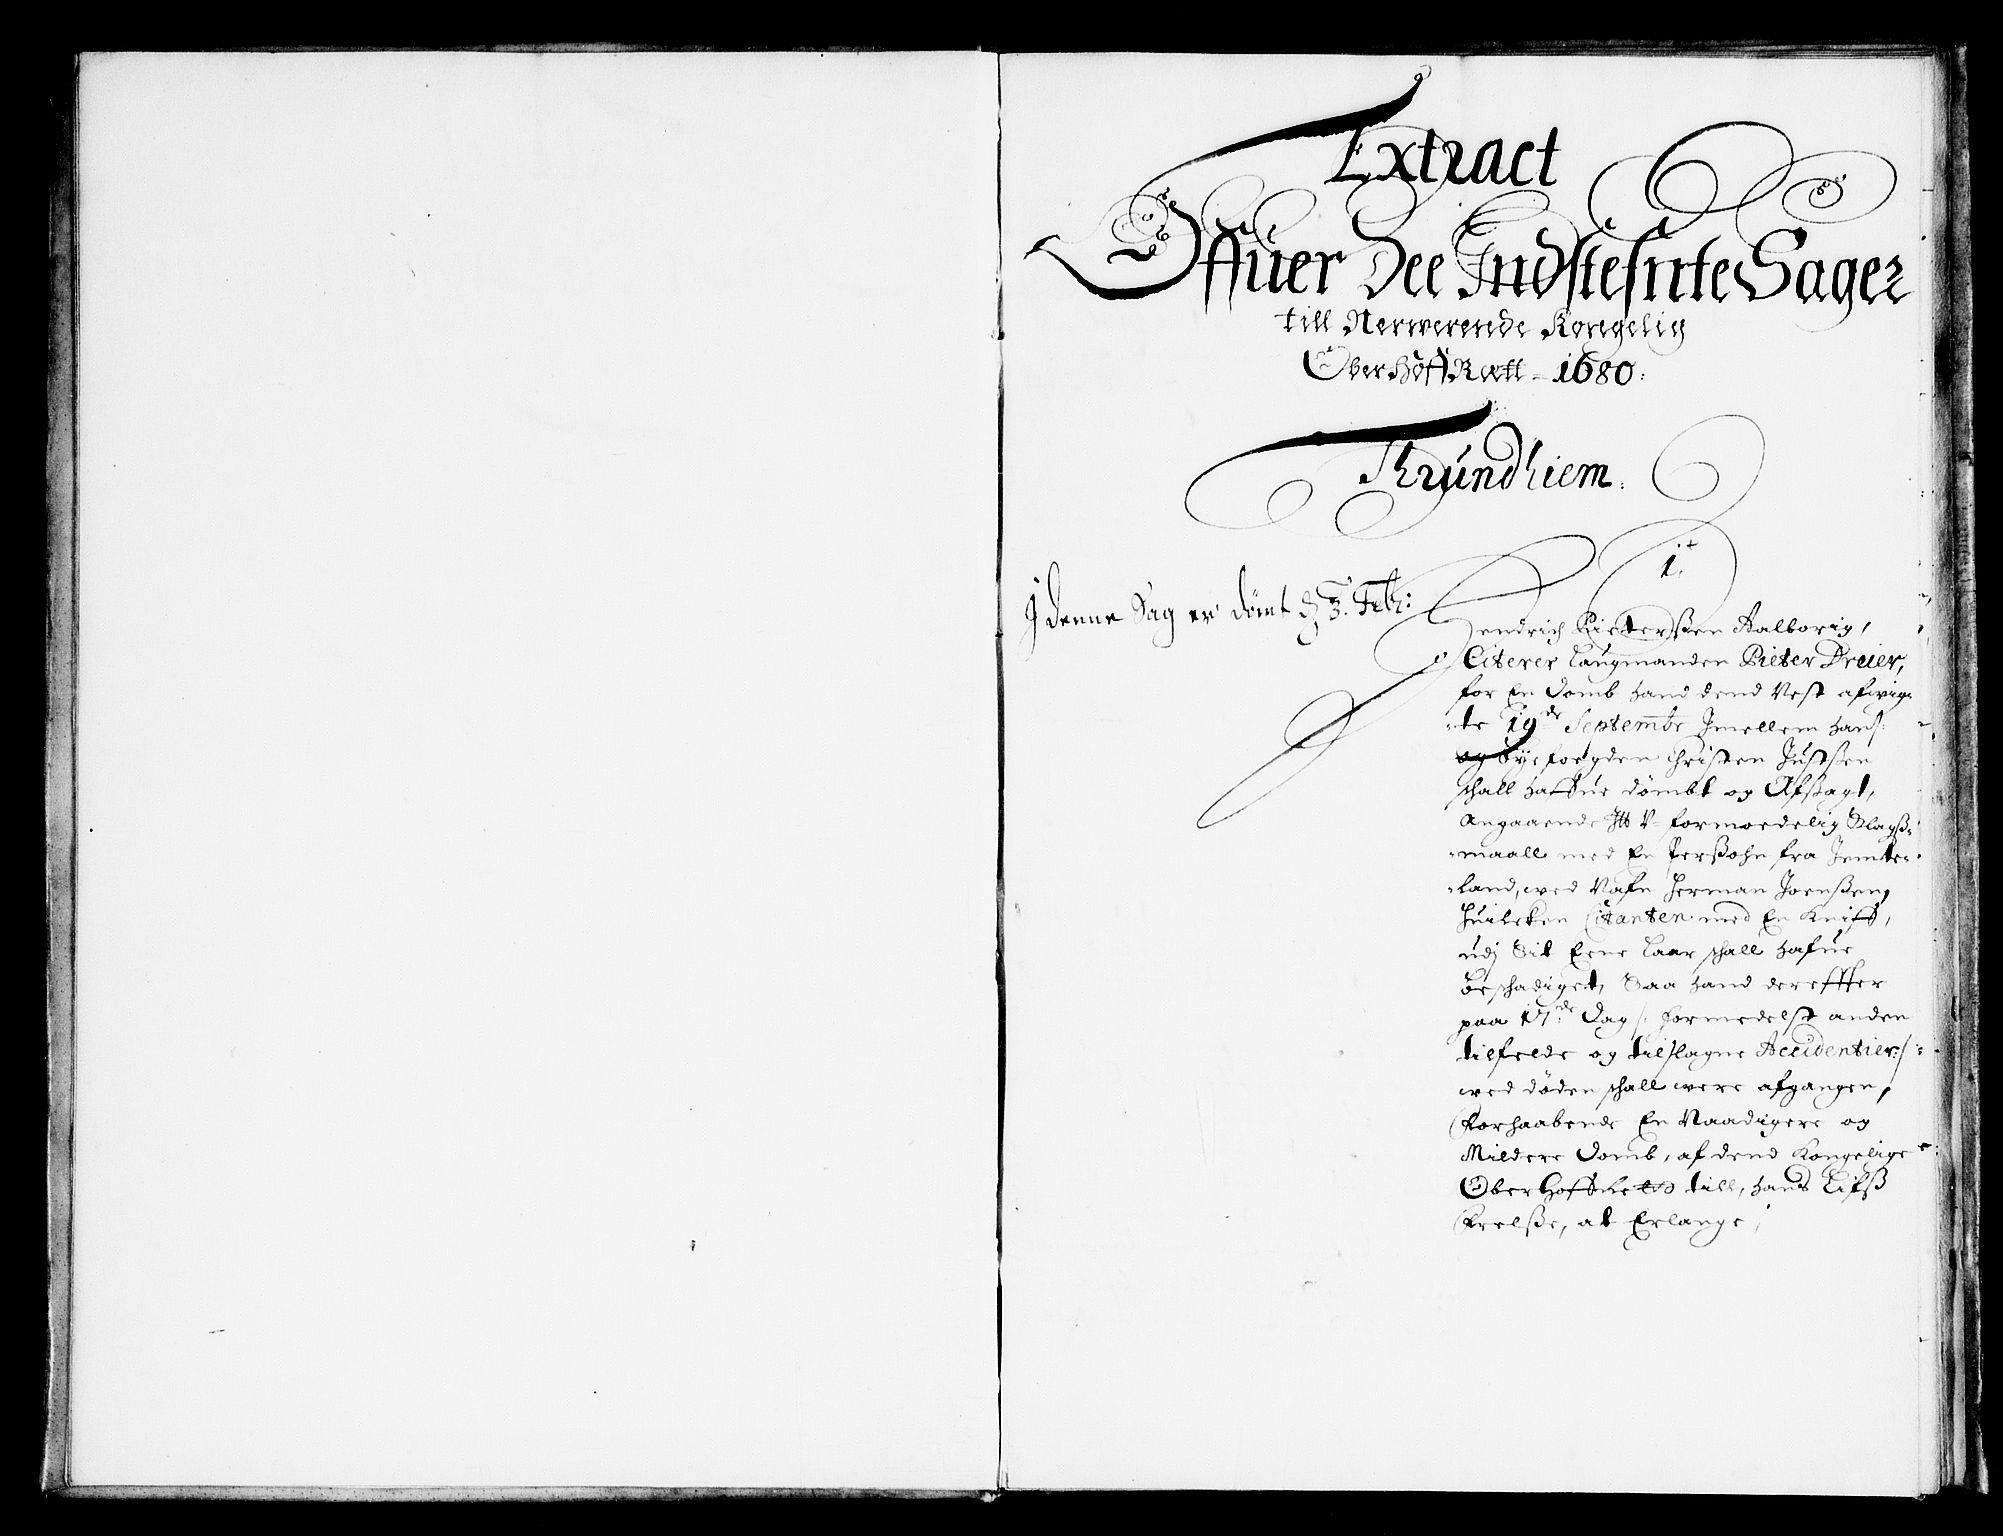 Extract
Offuer Dee Indstefnte Sager
till Nerwerende Kongelig
OberHoffRætt - 1680:
Thrundhiem.
1.
I denne Sag er dömt d. 3. Febr:
Hendrich Pieterßen Aalborig,
Citerer Laugmanden Pieter Dreier,
for En Domb hand dend Nest afvig-
-te 19de Septembr Imellem ham
og byefogden Christen Justsen
schall haffue dömbt og Afsagt,
Angaaende Itt V-formodelig Slagß-
-maall med En Perßohn fra Jemte-
-land, wed Nafn Herman Joenßen,
Huilcken Citanten med En Kniff,
udj Sit Eene Laar schall hafue
beschadiget, Saa hand dereffter
paa 17de Dag /: formedelst anden
tilfelde og tilslagne Accidentier:/
wed döden schall were afgangen,
Forhaabende En Naadigere og
Mildere Domb, af dend Kongelige
OberHoffRett till, hans Lifß
Frelße, at Erlange,